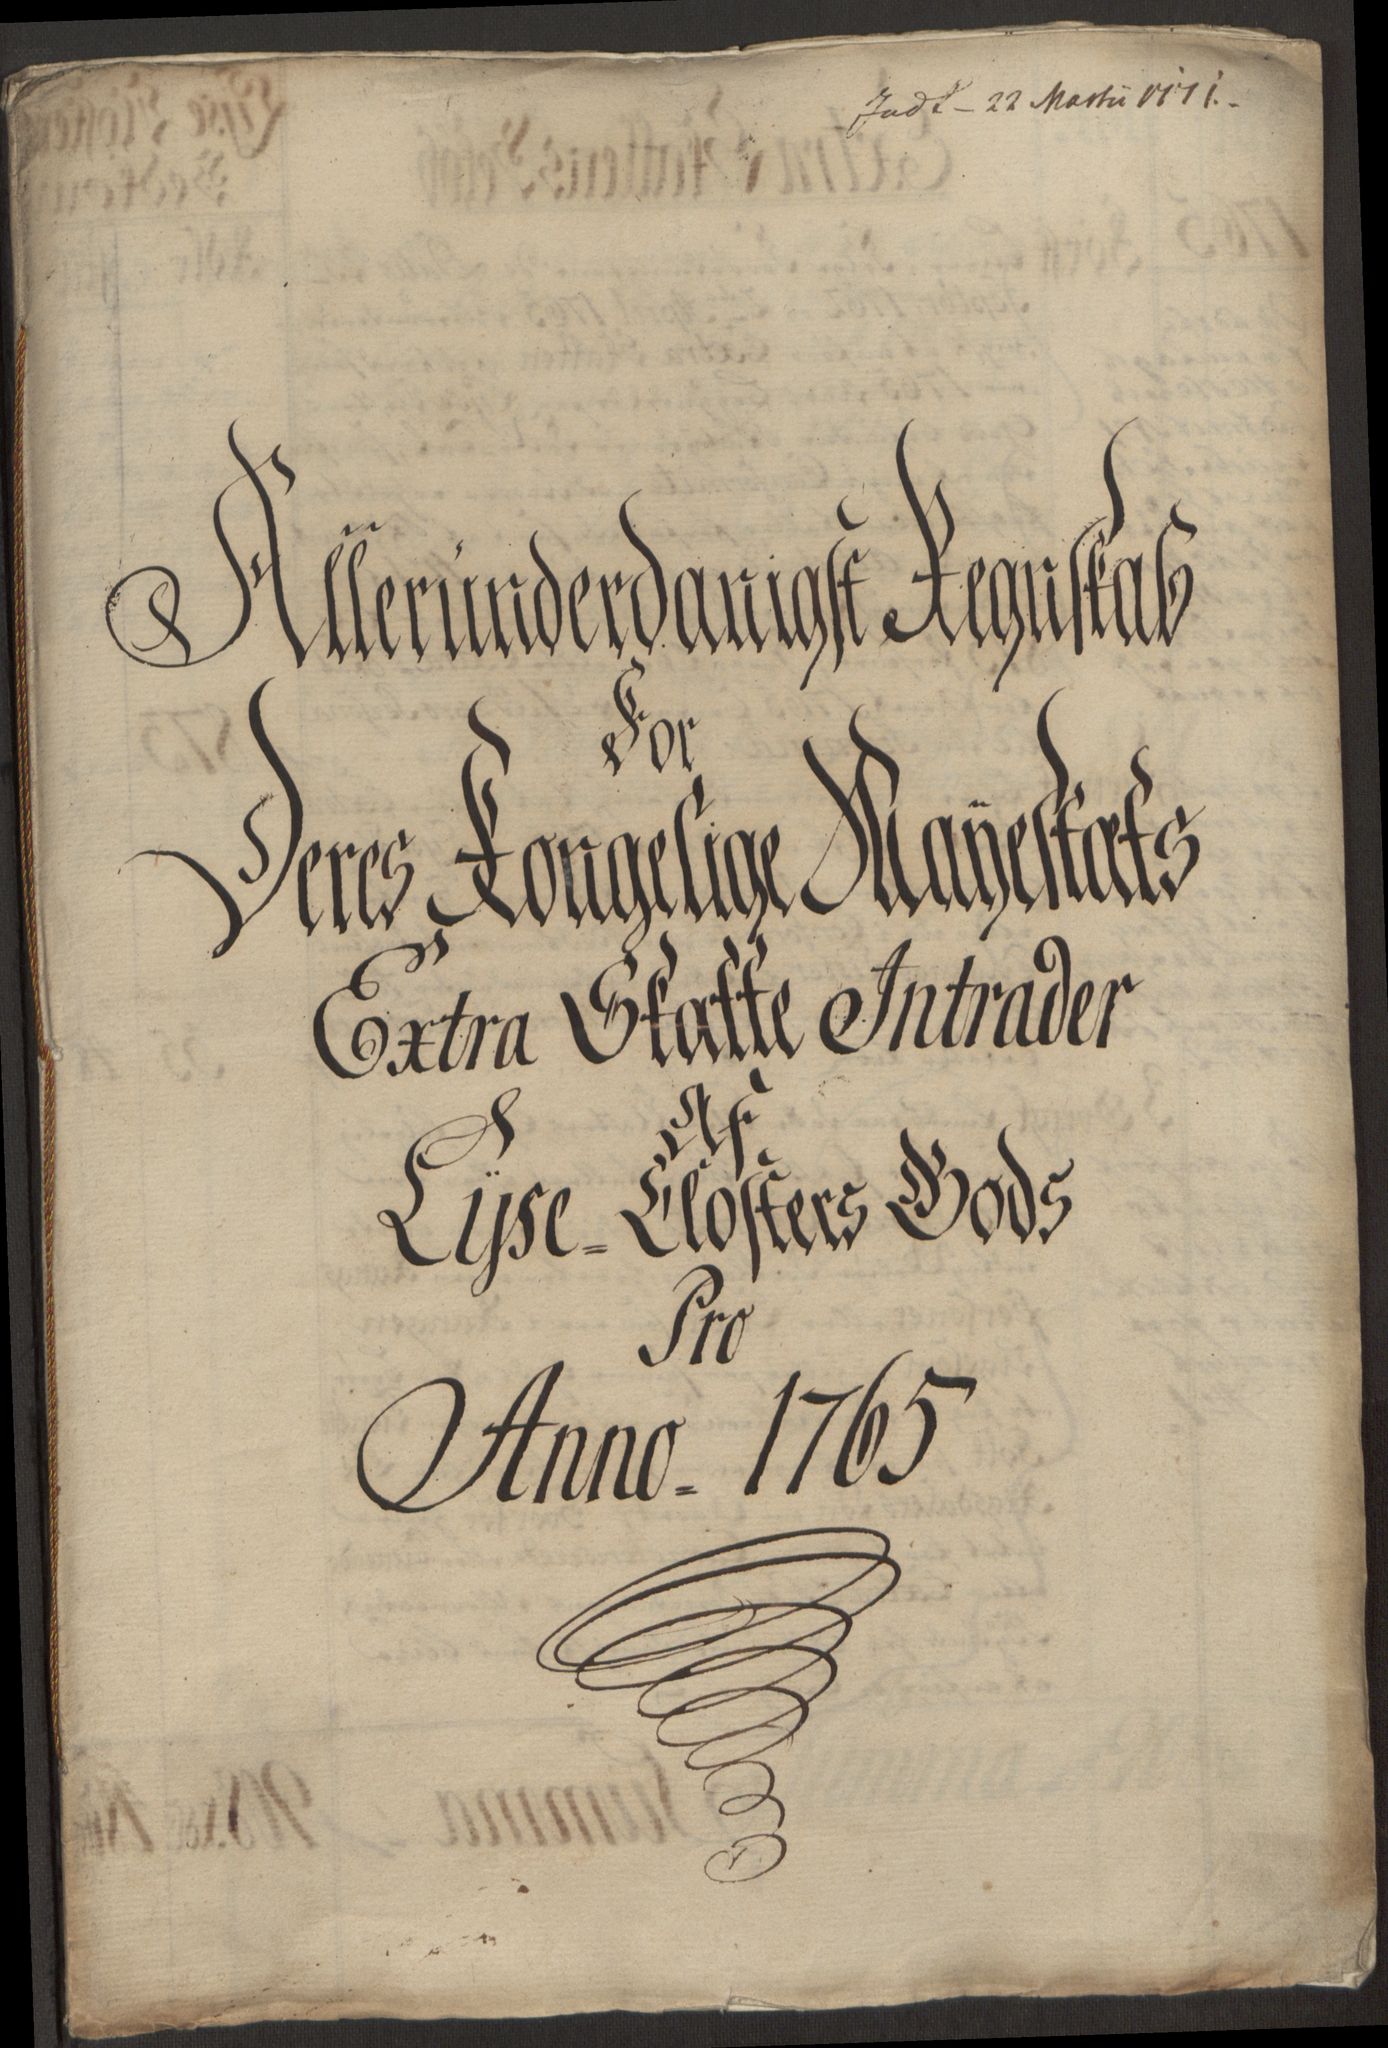 Jndl – 22 Martii 1771.
Alleründerdanigst Regnskab
For
Deres Kongelige Mayestæts
Extra Skatte Intrader
Af
Lÿse = Closters Gods
Pro
Anno = 1765